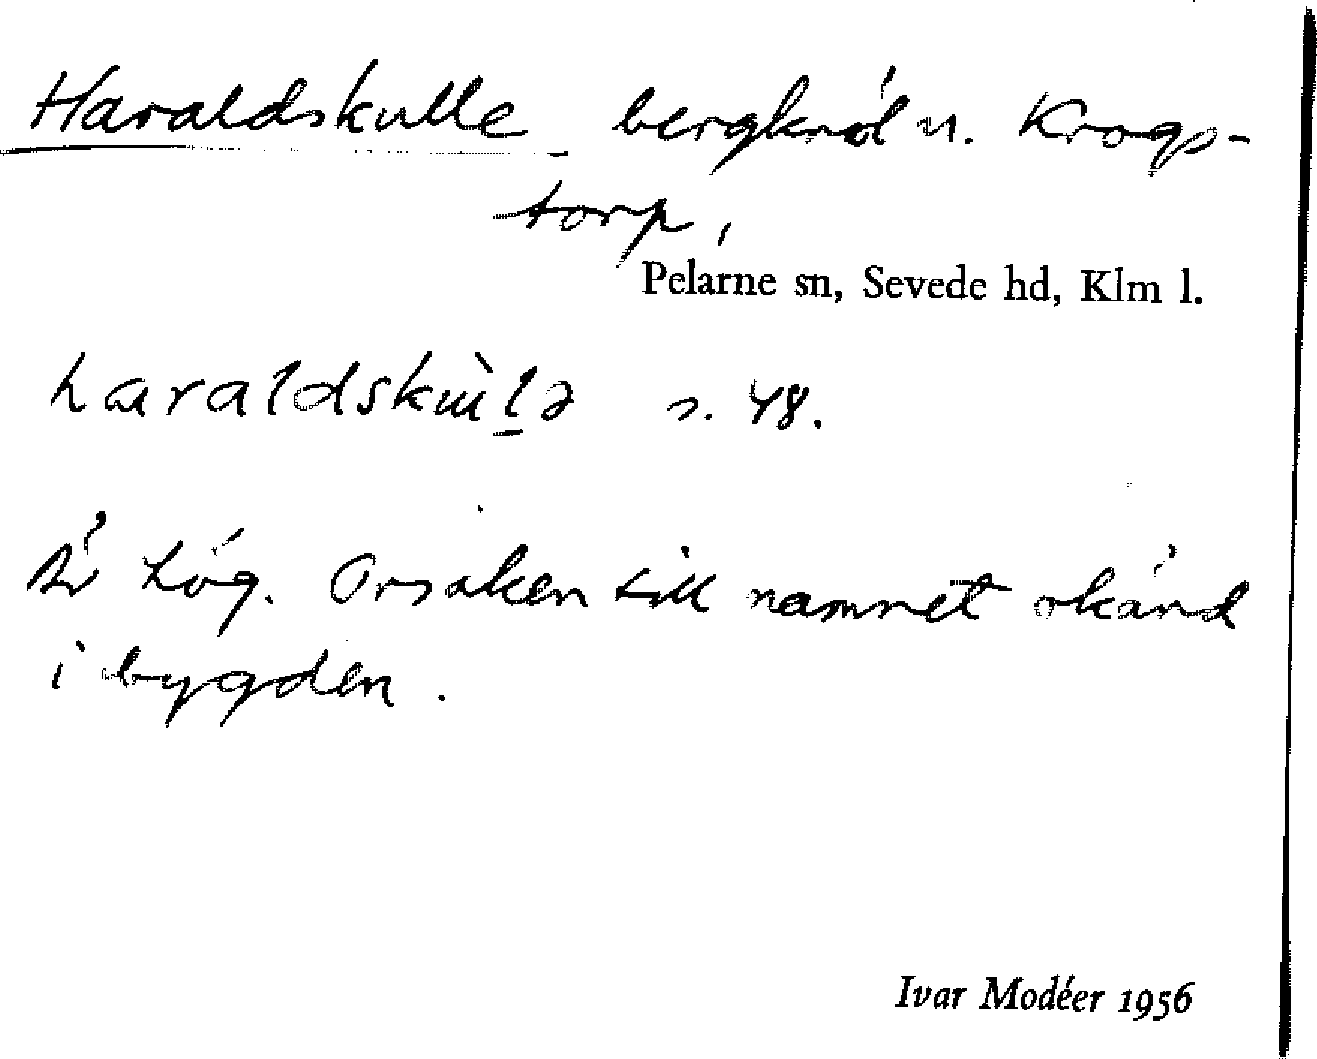 Haraldskulle bergknöl u. Krogs-
torp,
Pelarne sn, Sevede hd, Klm l.
haraldskùlə s. 48.
Är hög. Orsaken till namnet okänd
i bygden.
Ivar Modéer 1956